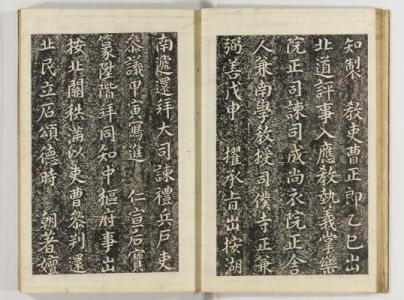 知製 教吏曹正郎乙巳出
北道評事入應教執義掌樂
院正司諫司成尚衣院正舍
人兼南學教授司僕寺正兼
弼善戊申 擢承旨出按湖
南遞還拜大司諫禮兵戶吏
叅議甲寅寫進 仁宣石寶
篆陞階拜同知中樞府事出
按北關秩滿以吏曹叅判還
北民立石頌德時 朝著嬗